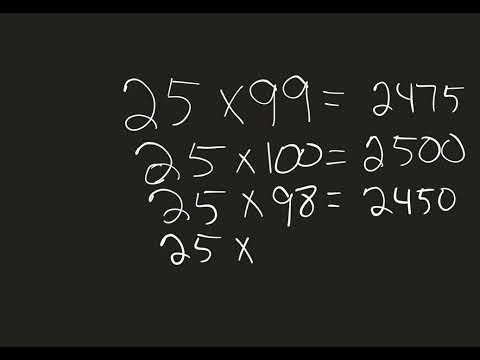 25 x 99 = 2475
25 x 100 = 2500
25 x 98 = 2450
25 x